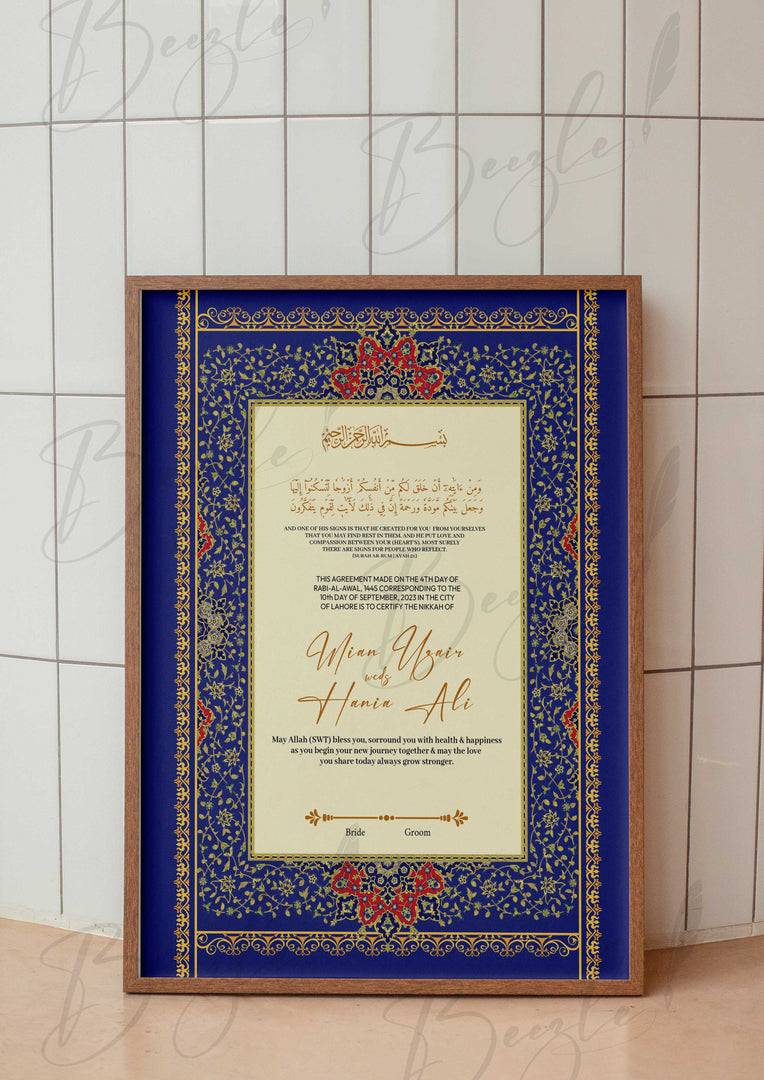 Beezle!
Beezle!
بسم الله الرحمن الرحيم
وَمِنْ ءَايَٰتِهِۦٓ أَنْ خَلَقَ لَكُم مِّنْ أَنفُسِكُمْ أَزْوَٰجًا لِّتَسْكُنُوٓا۟ إِلَيْهَا
وَجَعَلَ بَيْنَكُم مَّوَدَّةً وَرَحْمَةً إِنَّ فِى ذَٰلِكَ لَءَايَٰتٍ لِّقَوْمٍ يَتَفَكَّرُونَ
AND ONE OF HIS SIGNS IS THAT HE CREATED FOR YOU FROM YOURSELVES
THAT YOU MAY FIND REST IN THEM. AND HE PUT LOVE AND
COMPASSION BETWEEN YOUR (HEART'S). MOST SURELY
THERE ARE SIGNS FOR PEOPLE WHO REFLECT.
[SURAH AR-RUM | AYAH 21]
THIS AGREEMENT MADE ON THE 4TH DAY OF
RABI-AL-AWAL, 1445 CORRESPONDING TO THE
10th DAY OF SEPTEMBER, 2023 IN THE CITY
OF LAHORE IS TO CERTIFY THE NIKKAH OF
Mian Uzair
weds
Hania Ali
May Allah (SWT) bless you, sorround you with health & happiness
as you begin your new journey together & may the love
you share today always grow stronger.
Bride Groom
Beezle!